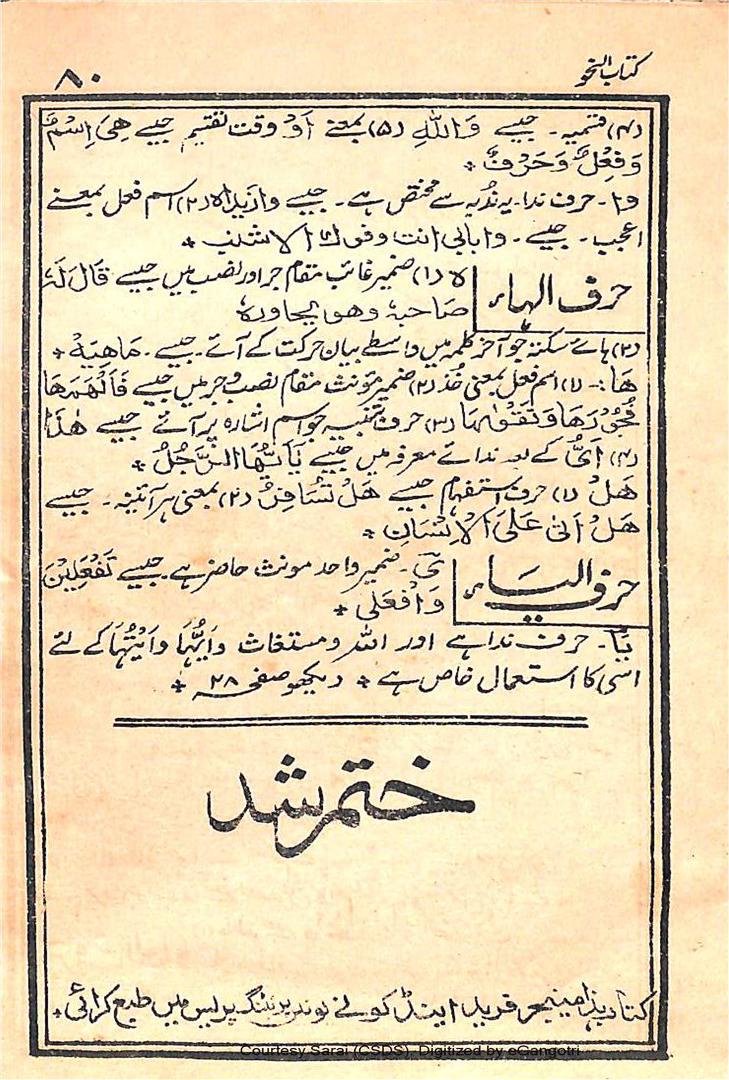 کتاب النحو
۸۰
(۴) قسمیہ۔ جیسے وَاللّٰہِ (۵) بمعنے اَوْ وقت تقسیم جیسے ھِیَ اِسْمٌ
وَفِعْلٌ وَحَرْفٌ *
وا۔ حرف ندا۔ یہ نُدبہ سے مختص ہے۔ جیسے وازیداہ (۲) اسم فعل بمعنے
اعجب۔ جیسے۔ وابابی انت وفوک الاشنب *
حرف الہاء
ہ (۱) ضمیر غائب مقام جر اور نصب میں جیسے قَالَ لَہٗ
صَاحِبہٗ وھو یحاورہ
(۲) ہائے سکتہ جو آخر کلمہ میں واسطے بیان حرکت کے آئے۔ جیسے۔ مَاھِیَہْ *
ھَا:۔ (۱) اسم فعل بمعنی خُذْ (۲) ضمیر مؤنث مقام نصب و جر میں جیسے فَاَلْھَمَھَا
فُجُوْرَھَا وَتَقْوٰىھَا (۳) حرف تنبیہ جو اسم اشارہ پر آئے جیسے ھٰذَا
(۴) اَیُّ کے بعد ندائے معرفہ میں جیسے یَااَیُّھَا الرَّجُلُ *
ھَلْ (۱) حرف استفہام جیسے ھَلْ تُسَافِرُ (۲) بمعنی ہر آئینہ۔ جیسے
ھَلْ اَتٰی عَلَی الْاِنْسَانِ *
حرف الیاء
یَ۔ ضمیر واحد مونث حاضر ہے۔ جیسے تَفْعَلِیْنَ
وَافْعَلِی *
یَا۔ حرف ندا ہے اور اللہ و مستغاث وایُّھَا وایَّتُھَا کے لئے
اسی کا استعمال خاص ہے * دیکھو صفحہ ۲۸ *
ختم شد
کتاب ہذا مینیجر فرید اینڈ کو نے پرنٹنگ پریس میں طبع کرائی *
Courtesy Sarai (CSDS). Digitized by eGangotri